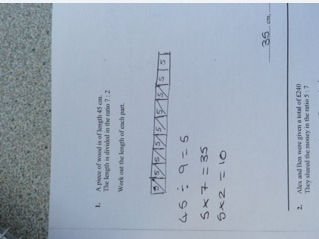 1. A piece of wood is of length 45 cm.
The length is divided in the ratio 7 : 2
Work out the length of each part.
5 5 5 5 5 5 5 5 5
45 ÷ 9 = 5
5 × 7 = 35
5 × 2 = 10
35 cm,
2. Alex and Ben were given a total of £240
They shared the money in the ratio 5 : 7